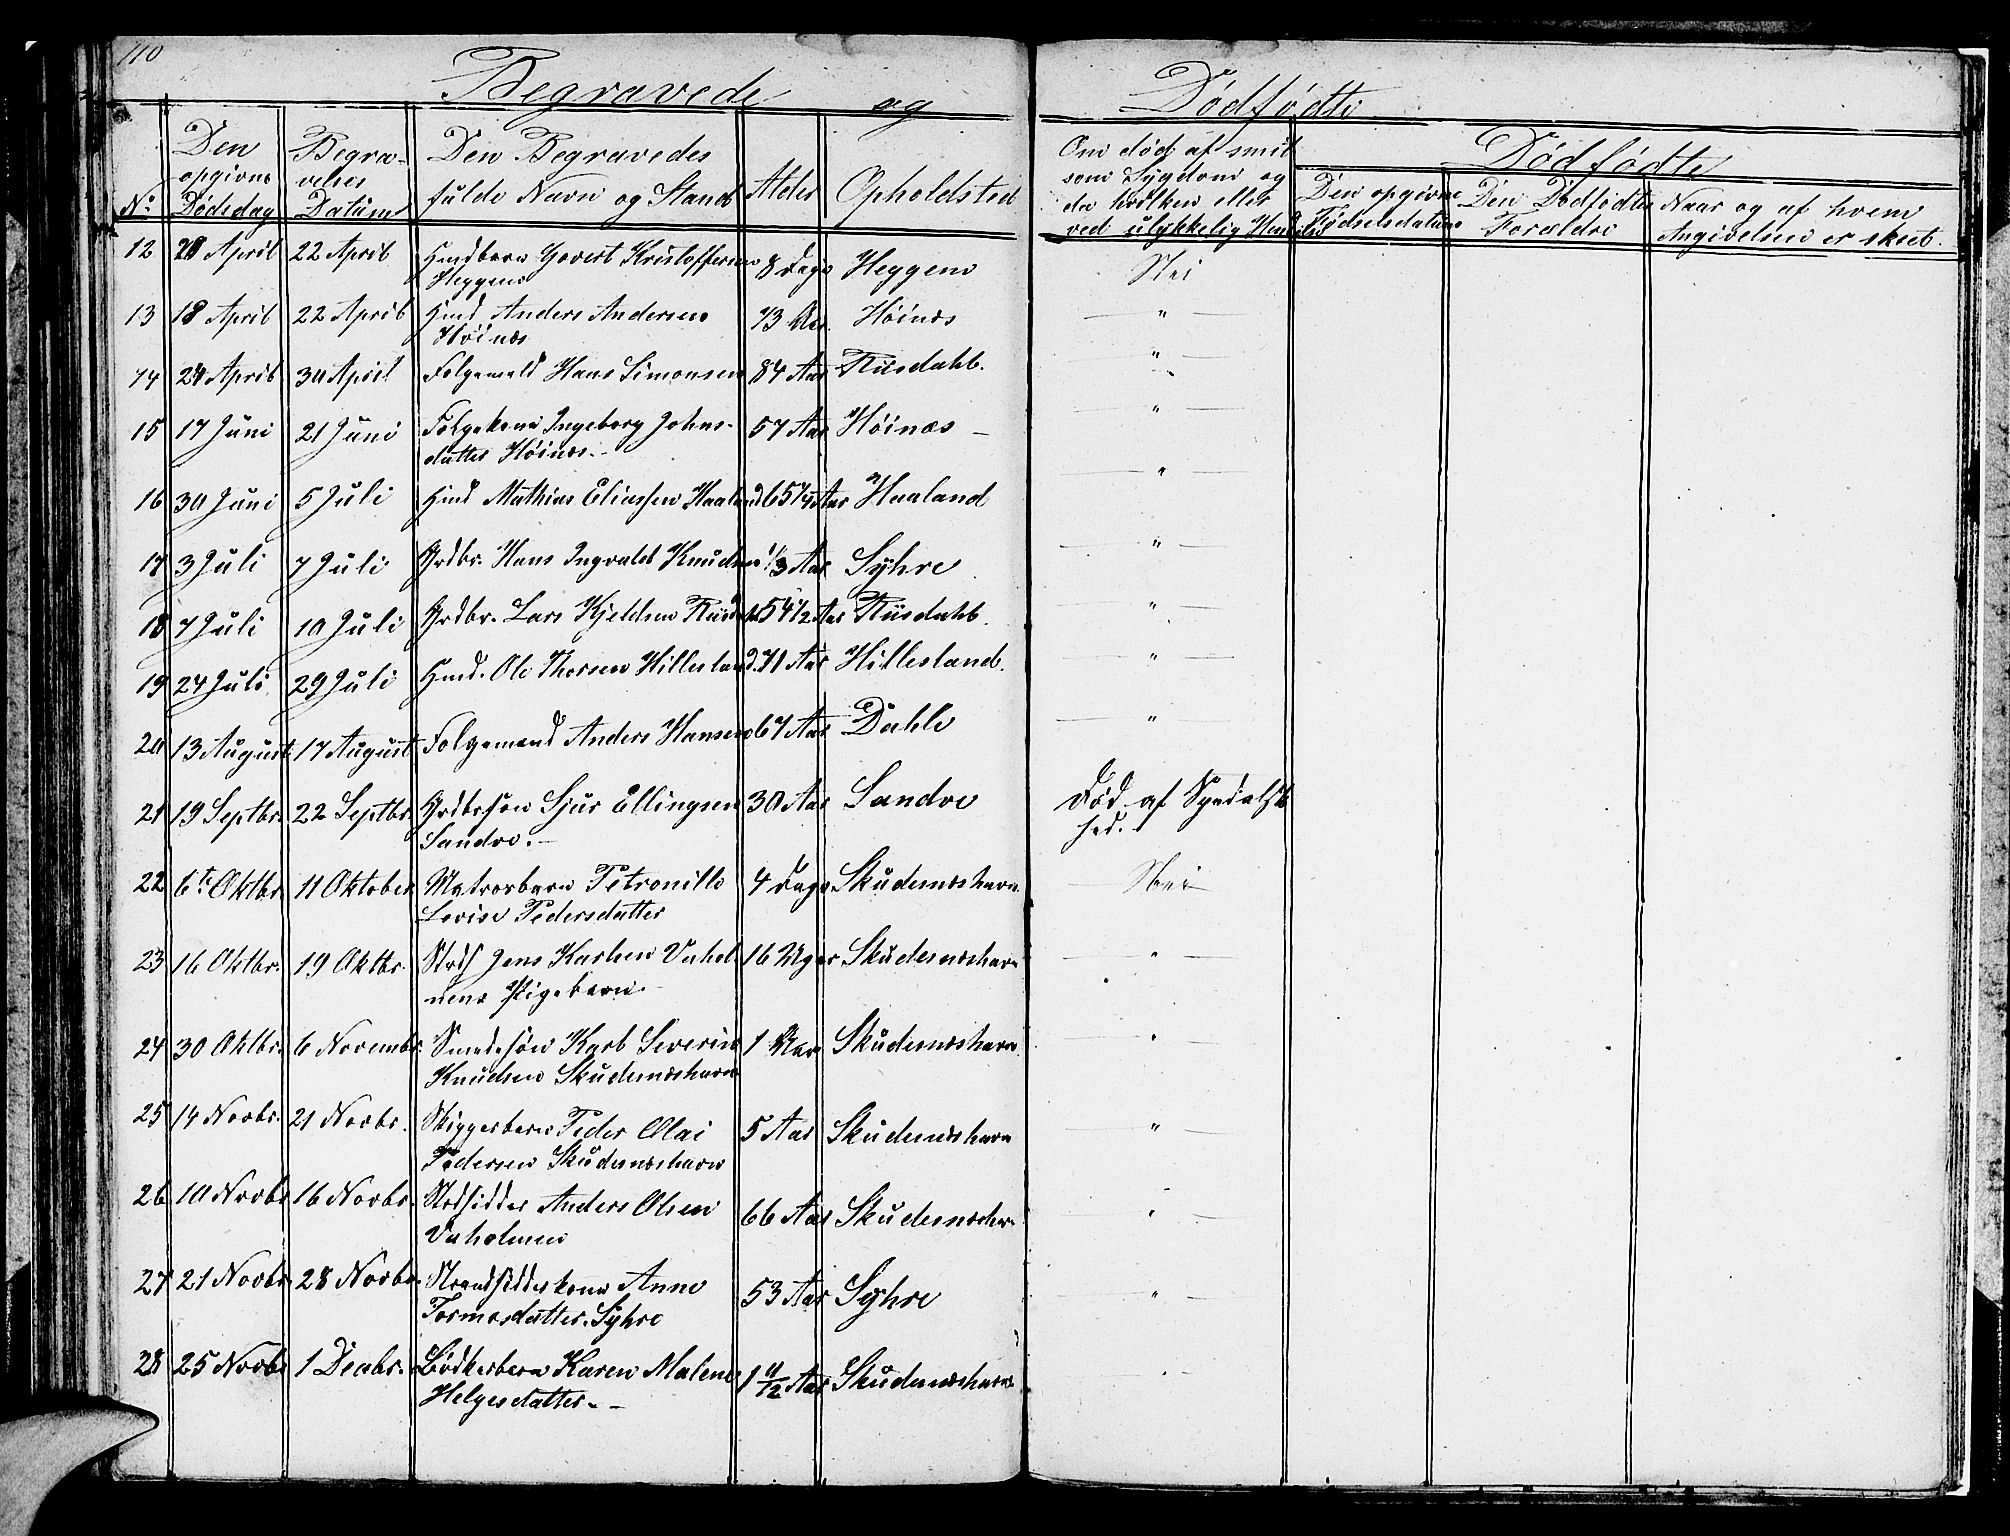 110
Begravede og Dødfødte
No
Den opgivne Dødsdag
Begravelses Datum
Den Begravedes fulde Navn og Stand
Alder
Opholdsted
Om død af smitsom Sygdom og da hvilken eller ved ulykkelig Hendelse
Dødfødte
Den opgivne Fødselsdatum
Den Dødfødtes Forældre
Naar og af hvem Angivelsen er skeet.
12 21 April 22 April Huusbarn Govert Kristoffersen 8 Dage Heggem Nei
Heggem
13 18 April 22 April Huusm Anders Andersen 73 Aar. Høinæs — " —
Høinæs
14 24 April 30 April Folgemand Hans Simonsen 84 Aar Riisdahl. — " —
15 17 Juni 21 Juni Folgekone Ingeborg Johns- 57 Aar Høinæs — — " —
datter Høinæs. –
16 30 Juni 5 Juli Mathias Eliassen Haaland 65 1/4 Aar Haaland — " —
17 3 Juli 7 Juli Grdbr. Hans Ingvald Knudsen 1/3 Aar Syhre — " —
18 7 Juli 10 Juli Grdbr. Lars Kjeldsen Riisdahl 54 1/2 Aar Riisdahl. — " —
19 24 Juli 29 Juli Ole Thorsen Hillesland. 71 Aar Hillesland. — " —
20 13 August 17 August Folgemand Anders Hansen 67 Aar Dahle — " —
21 19 Septbr. 22 Septbr. Grdbrsøn Sjur Ellingsen 30 Aar Sandve Død af Spedalsk
Sandve. – hed.
22 6te Oktbr. 11 Oktober Matrosbarn Petronille 4 Dage Skudesnæshavn Nei
Lovise Pedersdatter
23 16 Oktbr. 19 Oktbr. Jens Karlsen Vahol 16 Uger Skudesnæshavn — " —
mens Pigebarn. –
24 30 Oktbr. 6 Novembr. Smedesøn Karl Severin 1 Aar Skudesnæshavn — " —
Knudsen Skudesnæshavn
25 14 Novbr. 21 Novbr. Skipperbarn Peder Olai 5 Aar Skudesnæshavn — " —
Pedersen Skudesnæshavn
26 10 Novbr 16 Novbr. Strdsidder Anders Olsen 66 Aar Skudesnæshvn — " —
Vaholmen
27 21 Novbr. 28 Novbr. Strandsidderkone Anne 53 Aar Syhre — " —
Tormosdatter. Syhre
28 25 Novbr 1 Decbr. Bødkerbarn Karen Malene 1 11/12 Aar Skudesnæshavn
Helgesdatter. –